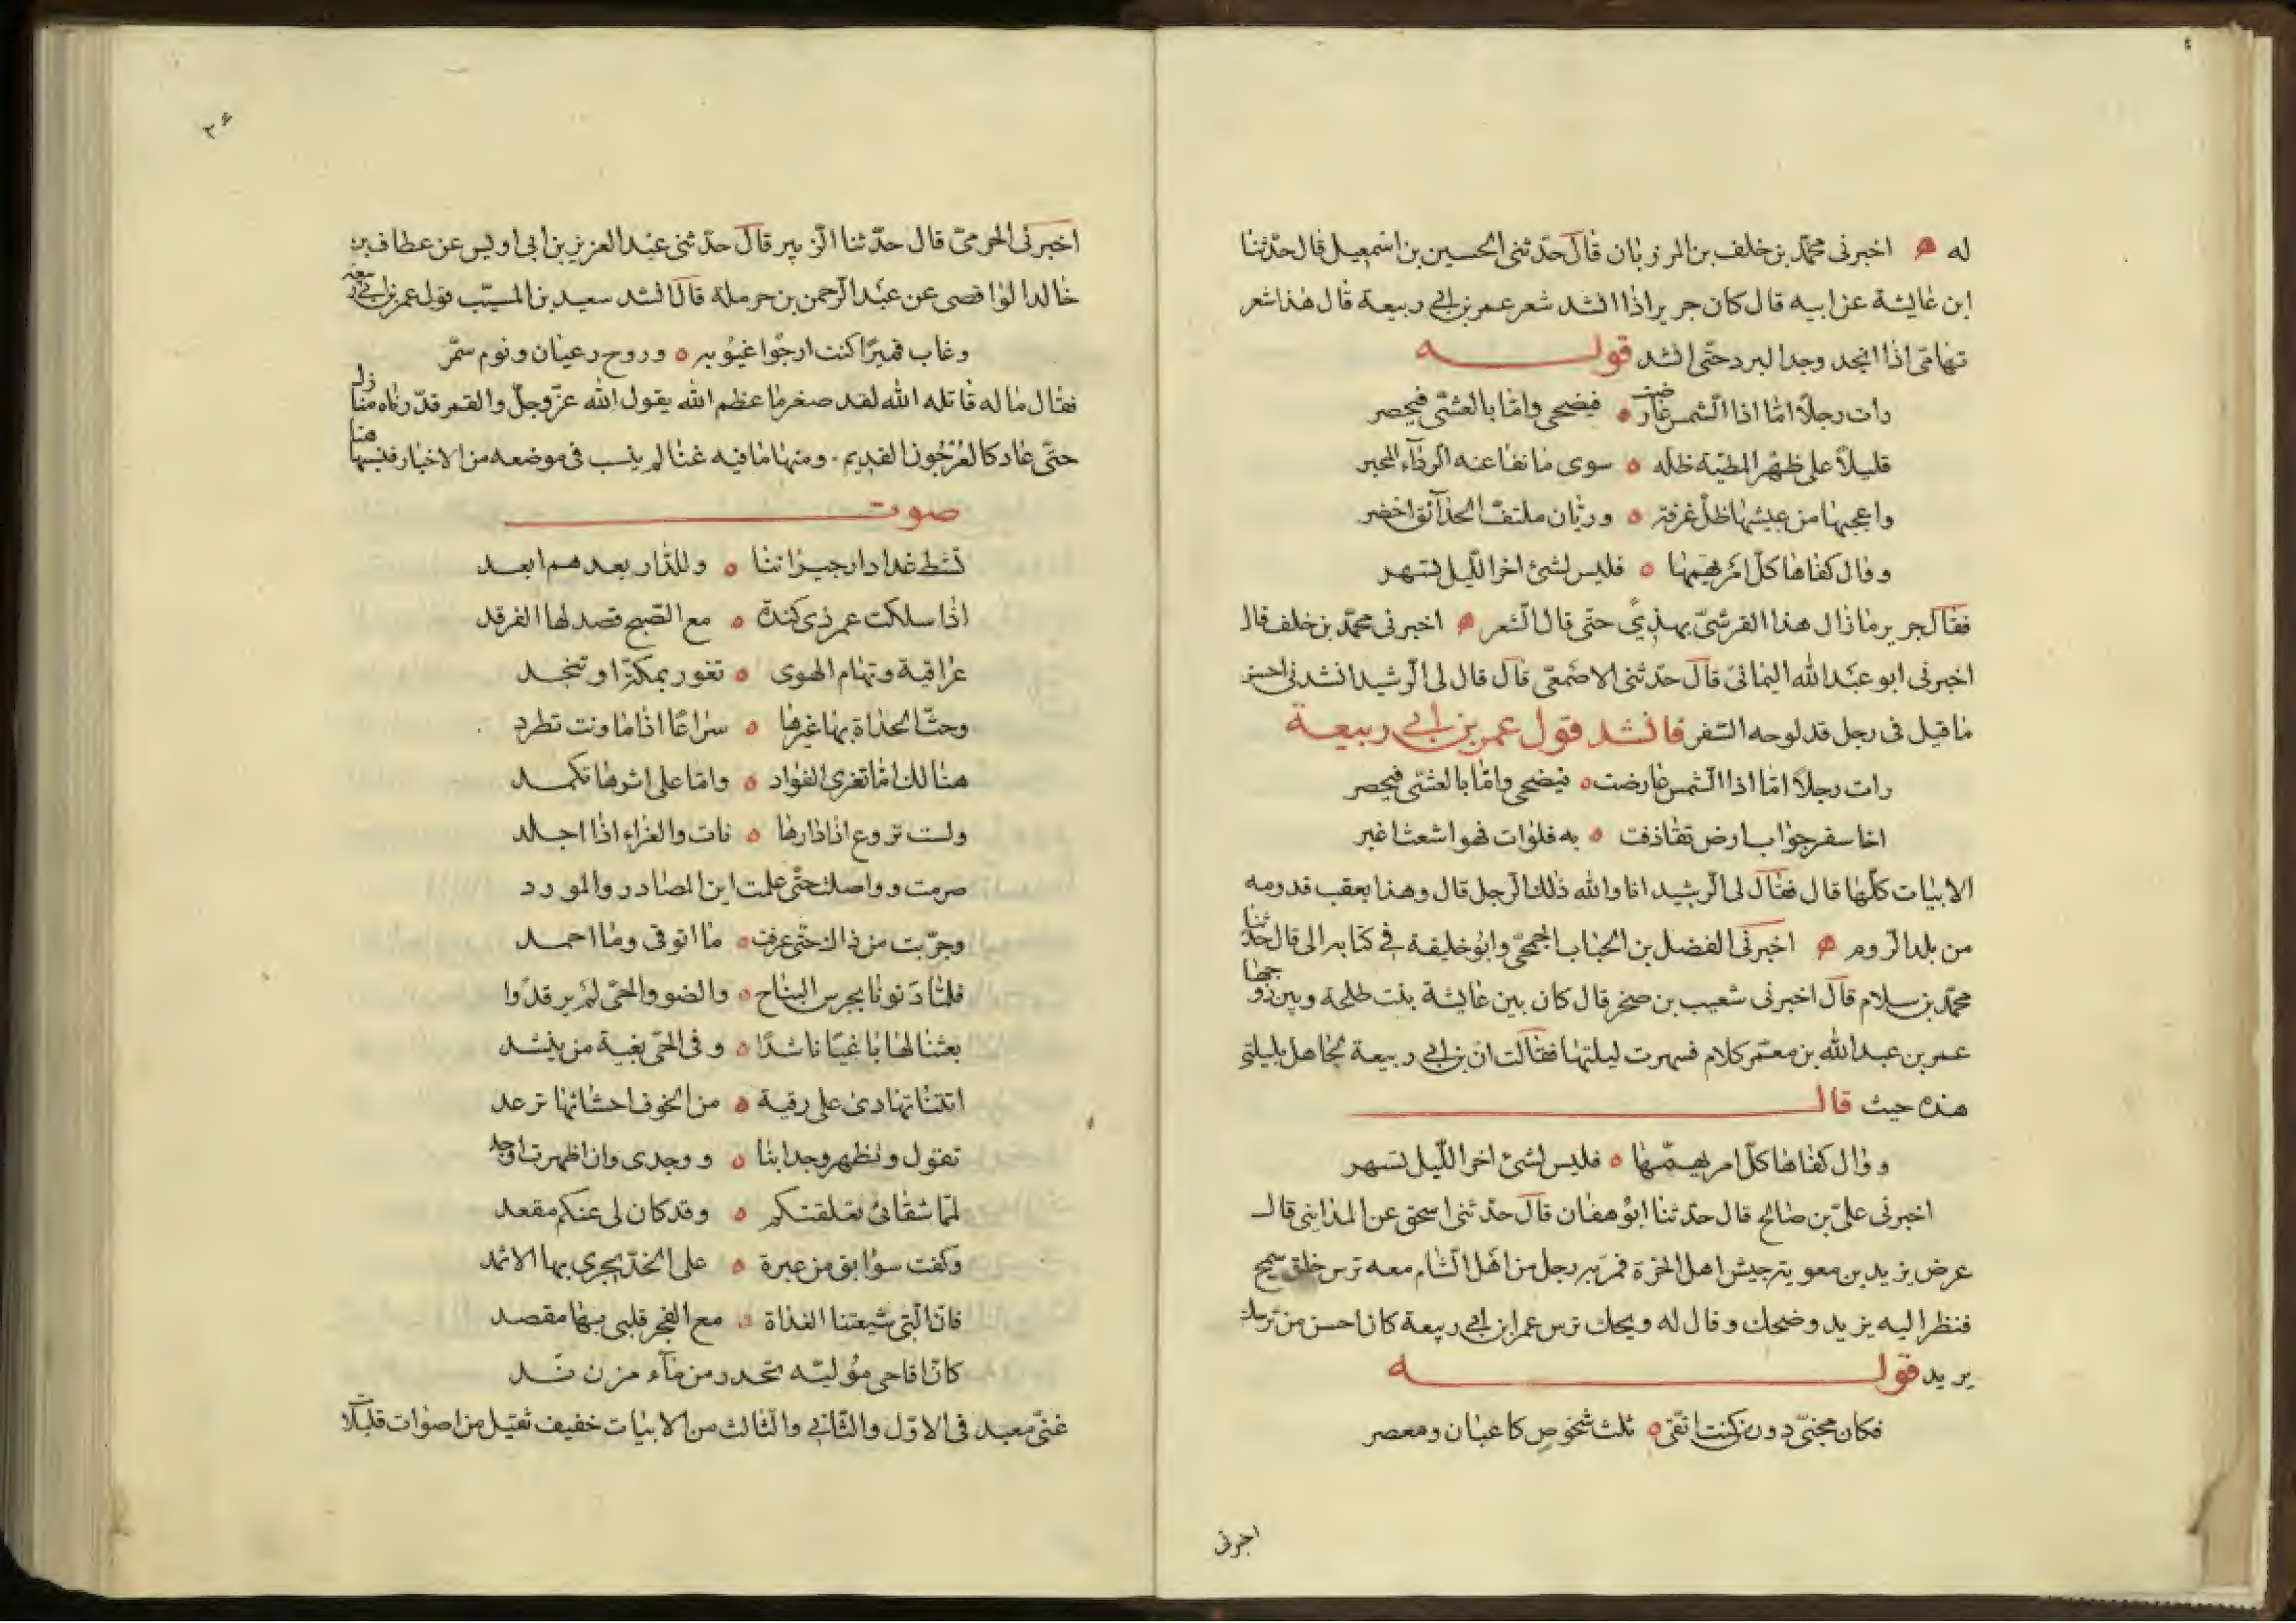 له ۞ اخبرنى محمّد بن خلف بن المرزبان قال حدّثنى الحسين بن اسمعيل قال حدّثنا
ابن عايشة عن ابيه قال كان جرير اذا انشد شعر عمر بن ابى ربيعة قال هذا شعر
تهامىّ اذا انجد وجد البرد حتّى انشد قوله
رات رجلاً امّا اذا الشّمس عارضت ه فيضحى وامّا بالعشىّ فيحصر
قليلاً على ظهر المطيّة ظله ه سوى ما نفا عنه الرداء المحبر
واعجبها من عيشها ظلّ غرفة ه وريّان ملتفّ الحدآئق اخضر
ووال كفاها كلّ امر يهمّها ه فليس لشئ اخر اللّيل تسهر
فقال جرير ما زال هذا القرشىّ يهذي حتّى قال الشعر ۞ اخبرنى محمّد بن خلف قال
اخبرنى ابو عبد الله اليمانى قال حدّثنى الاصمعىّ قال قال لى الرشيد انشدنى احسن
ما قيل فى رجل قد لوحه السّفر فانشد قول عمر بن ابى ربيعة
رات رجلاً امّا اذا الشّمس عارضت ه فيضحى وامّا بالعشىّ فيحصر
اخا سفر جوّاب ارض تقاذفت ه به فلوات فهو اشعث اغبر
الابيات كلّها قال فقال لى الرشيد انا والله ذلك الرجل قال وهذا بعقب قدومه
من بلد الروم ۞ اخبرنى الفضل بن الحباب الجمحىّ وابو خليفة فى كتابه الى قال حدّثنا
محمّد بن سلام قال اخبرنى شعيب بن صخر قال كان بين عايشة بنت طلحة وبين زوجها
عمر بن عبد الله بن معمّر كلام فسهرت ليلتها فقالت ان بن ابى ربيعة لجاهل بليلتى
هذه حيث قال
ووال كفاها كلّ امر يهمّها ه فليس لشئ اخر اللّيل تسهر
اخبرنى علىّ بن صالح قال حدّثنا ابو هفان قال حدّثنى اسحق عن المداينى قال
عرض يزيد بن معوية جيش اهل الحرة فمرّ به رجل من اهل الشّام معه ترس خلق سمج
فنظر اليه يزيد وضحك وقال له ويحك ترس عمر ابن ابى ربيعة كان احسن من ترسك
يريد قوله
فكان مجنىّ دون من كنت اتّقى ه ثلث شخوص كاعبان ومعصر
اخبرنى
٢۶
اخبرنى الحرمىّ قال حدّثنا الزّبير قال حدّثنى عبد العزيز بن ابى اويس عن عطاف بن
خالد الوابصى عن عبد الرّحمن بن حرملة قال انشد سعيد بن المسيّب قول عمر بن ابى ربيعة
وغاب قميرًا كنت ارجُوا غيُوبه ه وروح رعيان ونوم سمّر
فقال ما له قاتله الله لقد صغر ما عظم الله يقول الله عزّ وجلّ والقمر قدّرناه منازل
حتّى عاد كالعُرْجُون القديم . ومنها ما فيه غنا لم ينسب فى موضعه من الاخبار فنسبها هنا
صوت
تشط غدا دار جيراننا ه وللدّار بعد هم ابعد
اذا سلكت عمر ذى كندة ه مع الصّبح قصد لها الفرقد
عراقية وتهام الهوى ه تغور بمكّة او تنجد
وحثّ الحداة بها عيرها ه سراعًا اذا ما ونت تطرد
هنالك امّا تعزى الفؤاد ه وامّا على اثرها تكمد
ولست تروع اذا دارها ه نات والعزاء اذا اجلد
صرمت وواصلت حتّى علمت اين المصادر والمورد
وجرّبت من ذاك حتّى عرفت ه ما اتوقى وما احمد
فلمّا دَنونا بجرس النباح ه والضو والحىّ لَمْ يرقدُوا
بعثنا لها باغيًا ناشدًا ه وفى الحىّ بغية من ينشد
اتتنا تهادى على رقبة ه من الخوف احشائها ترعد
تقول وتظهر وجدا بنا ه ووجدى وان اظهرت اوجد
لمّا شقائى تعلقتكم ه وقد كان لى عنكم مقعد
وكفت سوابق من عبرة ه على الخدّ يجرى بها الاثمد
فانّ الّتى شيعتنا الغداة ه مع الفجر قلبى بها مقصد
كانّ اقاحى مؤليّه تحدر من مآء مزن نَد
غنّى معبد فى الاوّل والثّانى والثّالث من الابيات خفيف ثقيل من اصوات قليلات